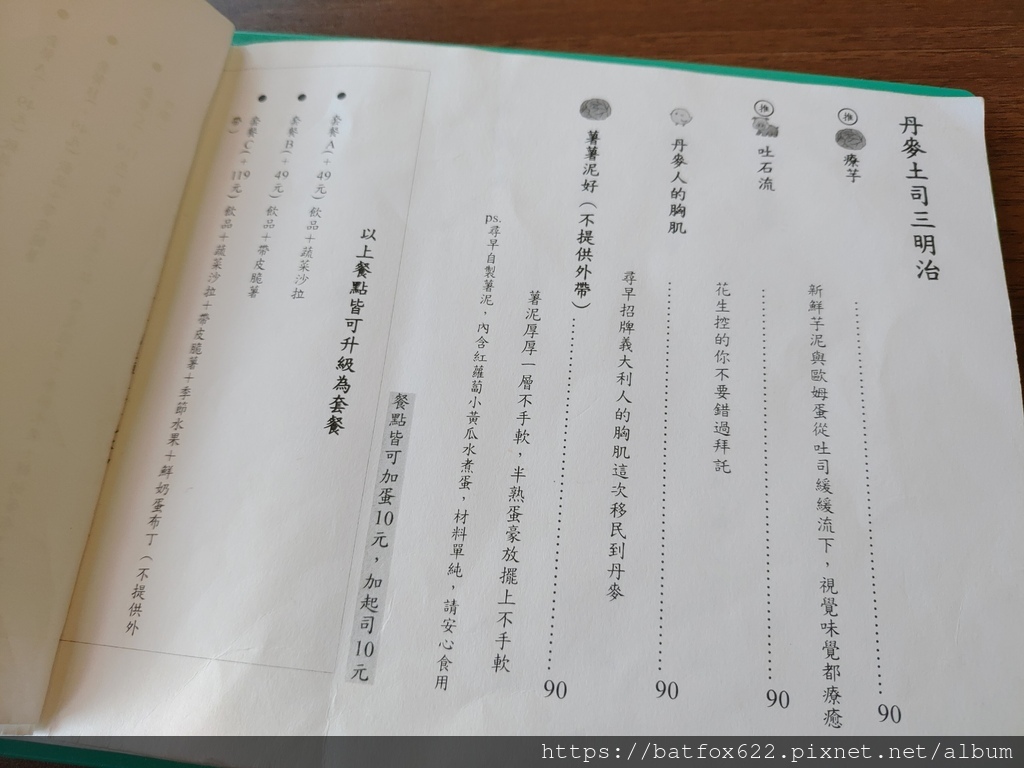 丹麥土司三明治
推
療芋
90
新鮮芋泥與歐姆蛋從吐司緩緩流下，視覺味覺都療癒
推
吐石流
90
花生控的你不要錯過拜託
丹麥人的胸肌
90
尋早招牌義大利人的胸肌這次移民到丹麥
薯薯泥好（不提供外帶）
90
薯泥厚厚一層不手軟，半熟蛋豪放擺上不手軟
ps.尋早自製薯泥，內含紅蘿蔔小黃瓜水煮蛋，材料單純，請安心食用
餐點皆可加蛋10元，加起司10元
以上餐點皆可升級為套餐
套餐A（+49元）飲品+蔬菜沙拉
套餐B（+49元）飲品+帶皮脆薯
套餐C（+119元）飲品+蔬菜沙拉+帶皮脆薯+季節水果+鮮奶蛋布丁（不提供外
帶）
https://batfox622.pixnet.net/album